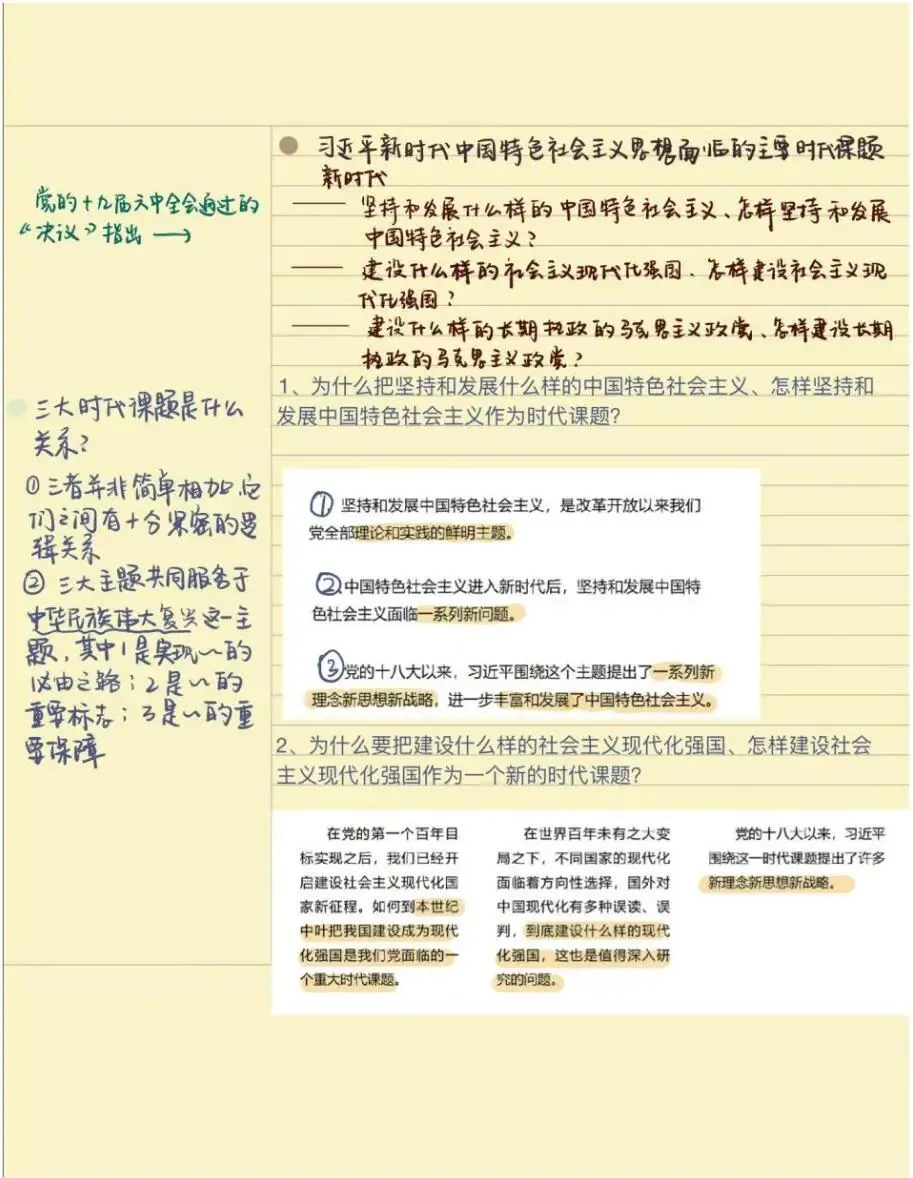 习近平新时代中国特色社会主义思想面临的主要时代课题
新时代
党的十九届六中全会通过的
“决议”指出 →
—— 坚持和发展什么样的中国特色社会主义、怎样坚持和发展
中国特色社会主义？
—— 建设什么样的社会主义现代化强国、怎样建设社会主义现
代化强国？
—— 建设什么样的长期执政的马克思主义政党、怎样建设长期
执政的马克思主义政党？
三大时代课题是什么
关系？
①三者并非简单相加，它
们之间有十分紧密的逻
辑关系
② 三大主题共同服务于
中华民族伟大复兴这一主
题，其中1是实现〰的
必由之路；2是〰的
重要标志；3是〰的重
要保障
1、为什么把坚持和发展什么样的中国特色社会主义、怎样坚持和
发展中国特色社会主义作为时代课题？
① 坚持和发展中国特色社会主义，是改革开放以来我们
党全部理论和实践的鲜明主题。
②中国特色社会主义进入新时代后，坚持和发展中国特
色社会主义面临一系列新问题。
③党的十八大以来，习近平围绕这个主题提出了一系列新
理念新思想新战略，进一步丰富和发展了中国特色社会主义。
2、为什么要把建设什么样的社会主义现代化强国、怎样建设社会
主义现代化强国作为一个新的时代课题？
在党的第一个百年目
标实现之后，我们已经开
启建设社会主义现代化国
家新征程。如何到本世纪
中叶把我国建设成为现代
化强国是我们党面临的一
个重大时代课题。
在世界百年未有之大变
局之下，不同国家的现代化
面临着方向性选择，国外对
中国现代化有多种误读、误
判，到底建设什么样的现代
化强国，这也是值得深入研
究的问题。
党的十八大以来，习近平
围绕这一时代课题提出了许多
新理念新思想新战略。